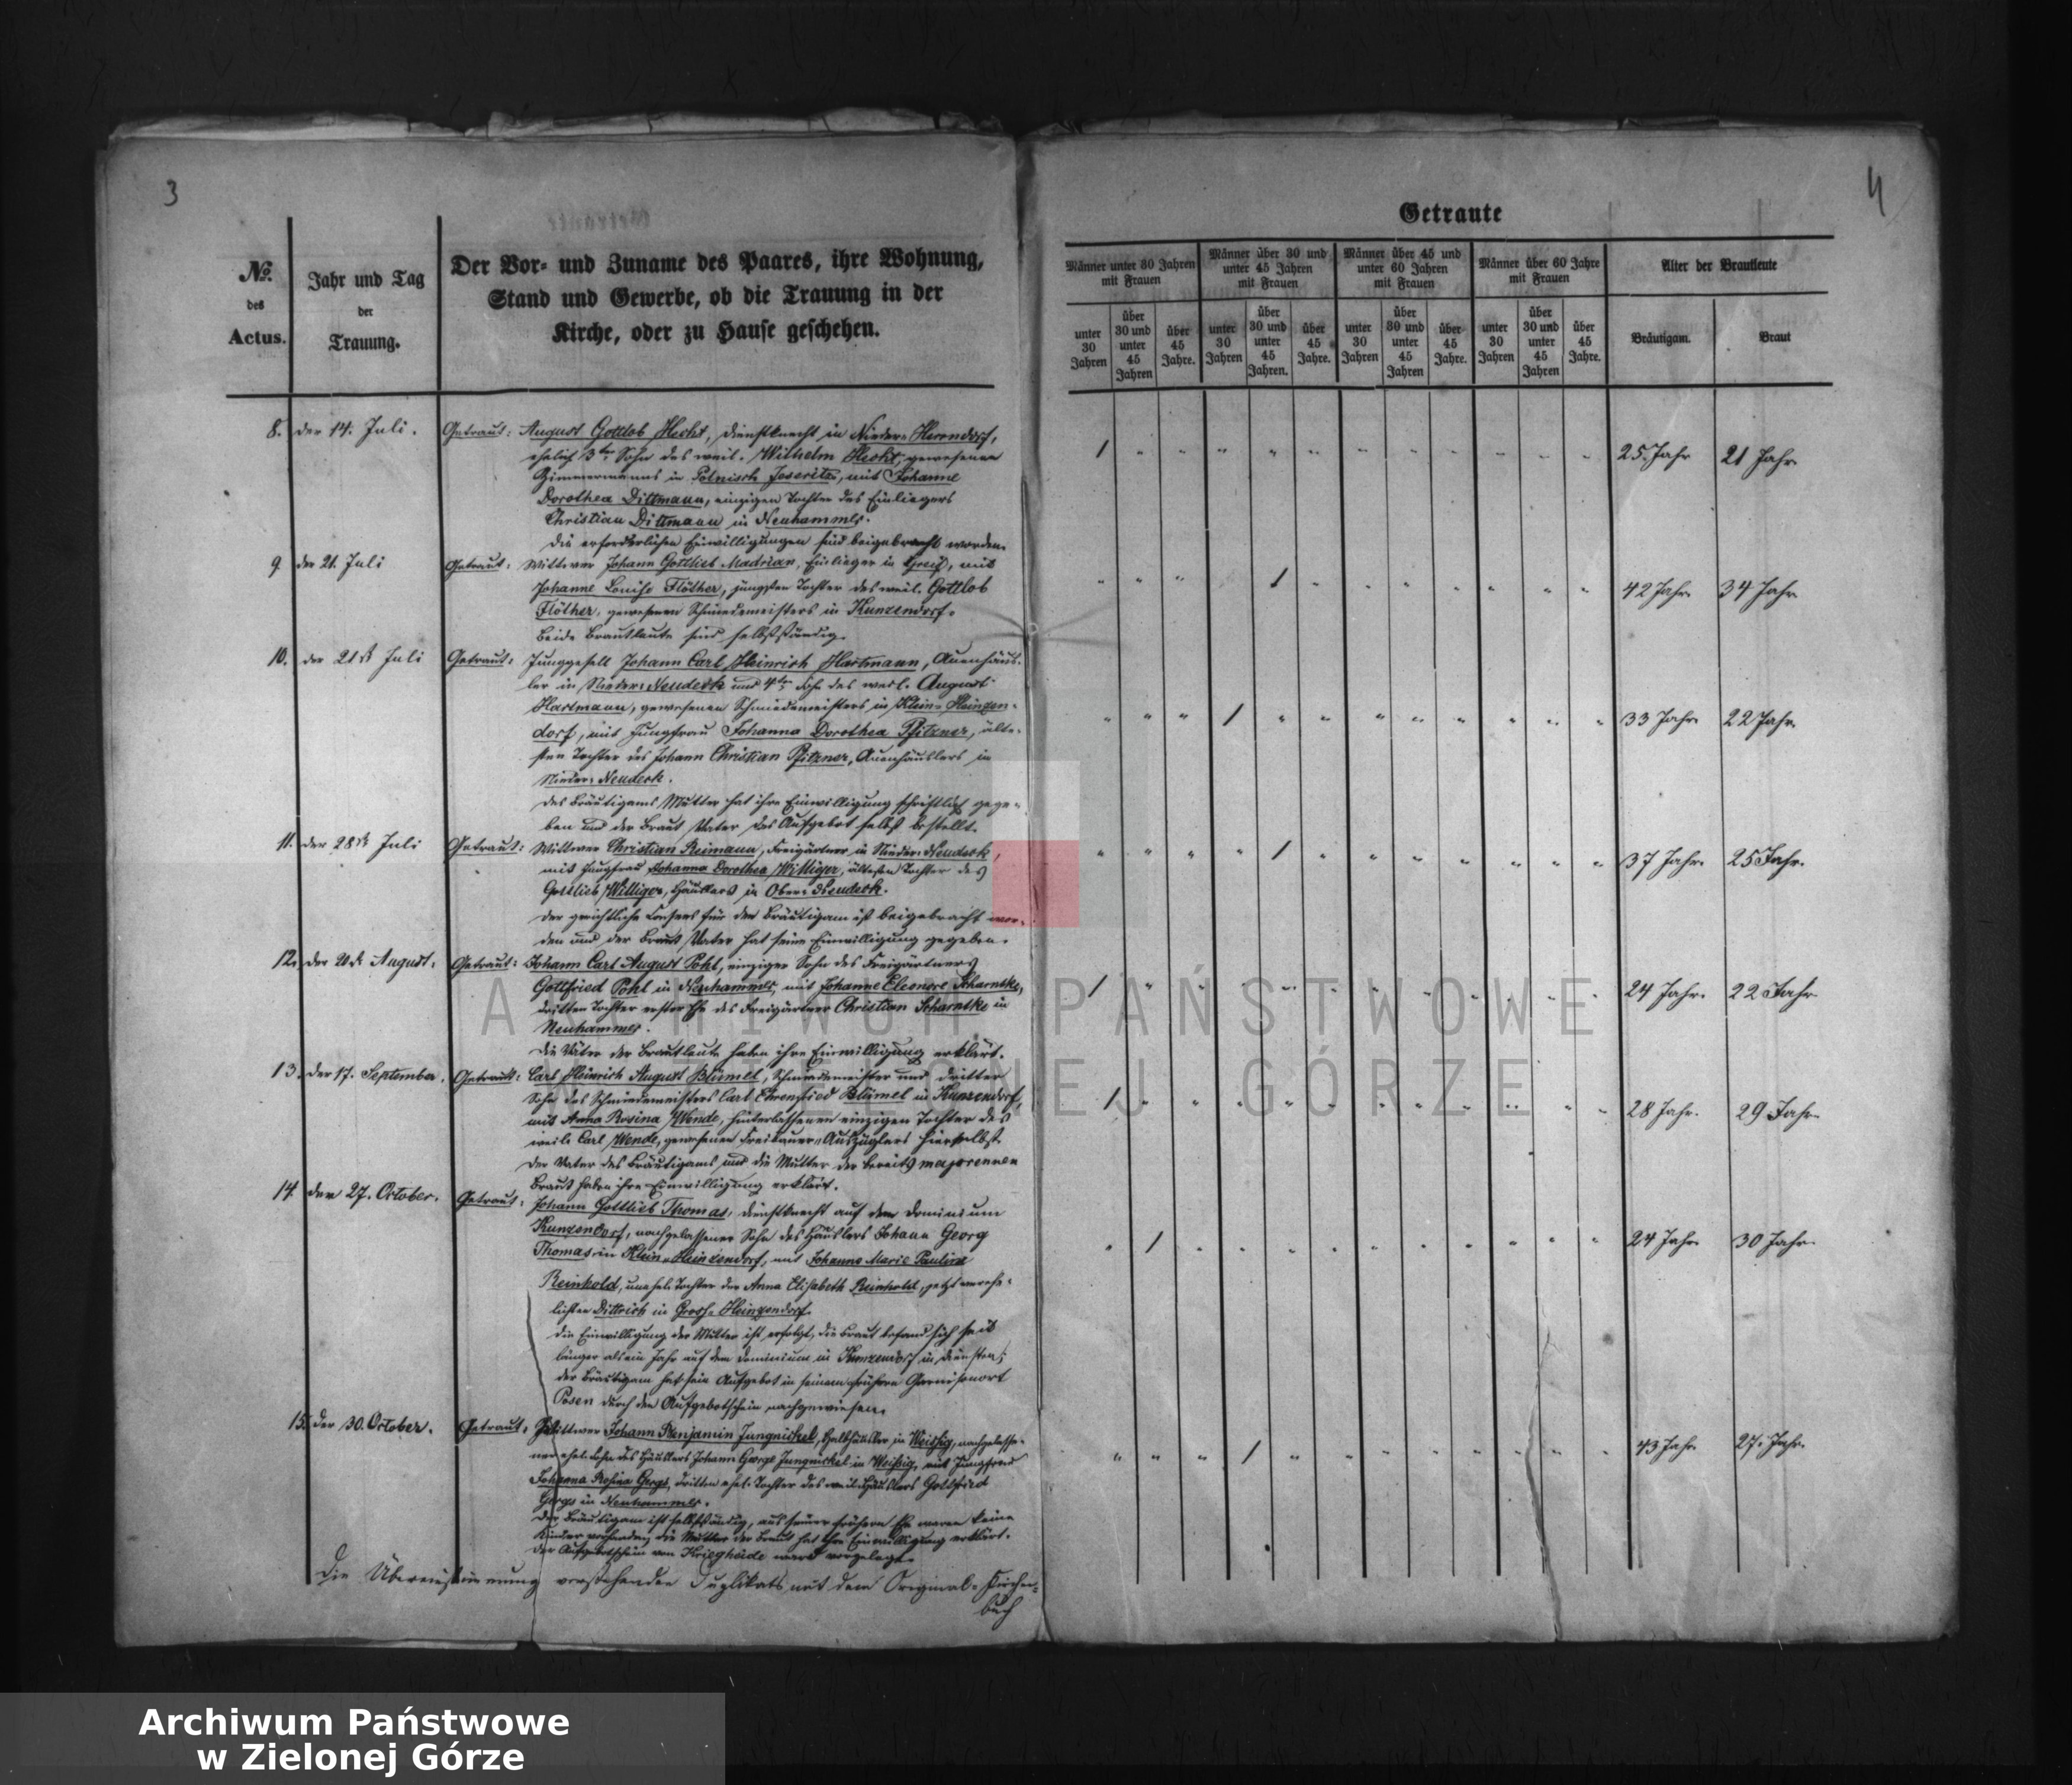 3
No.
des
Actus.
Jahr und Tag
der
Trauung.
Der Vor- und Zuname des Paares, ihre Wohnung,
Stand und Gewerbe, ob die Trauung in der
Kirche, oder zu Hause geschehen.
8. den 14. Juli. Getraut: August Gottlob Hecht, Dienstknecht in Nieder-Herrndorf,
ehelich 3ter Sohn des weil. Wilhelm Hecht, gewesenen
Zimmermanns in Polnisch Jeseritz, mit Johanne
Dorothea Dittmann, einzigen Tochter des Einliegers
Christian Dittmann in Neuhammer.
Die erforderlichen Einwilligungen sind beigebracht worden.
9 den 21. Juli Getraut: Wittwer Johann Gottlieb Madrian, Einlieger in, mit
Johanne Louise Flöther, jüngsten Tochter des weil. Gottlob
Flöther, gewesenen Schmiedemeisters in Kunzendorf.
Beide Brautleute sind selbstständig.
10. den 21st Juli Getraut: Junggesell Johann Carl Heinrich Hartmann, Auenhäus-
ler in Nieder-Neudeck und 4ter Sohn des weil. August
Hartmann, gewesenen Schmiedemeisters in Klein-Heinzen-
dorf, mit Jungfrau Johanna Dorothea Pfitzner, älte-
sten Tochter des Johann Christian Pfitzner, Auenhäuslers in
Nieder-Neudeck.
Des Bräutigams Mutter hat ihre Einwilligung schriftlich gege-
ben und der Braut Vater das Aufgebot selbst bestellt.
11. den 28st Juli Getraut: Wittwer Christian Reimann, Freigärtner in Nieder-Neudeck,
mit Jungfrau Johanna Dorothea Williger, ältesten Tochter des
Gottlieb Williger, Häuslers in Ober-Neudeck.
Der gerichtliche Consens für den Bräutigam ist beigebracht wor-
den und der Braut Vater hat seine Einwilligung gegeben.
12. den August. Getraut: Johann Carl August Pohl, einziger Sohn des Freigärtners
Gottfried Pohl in Neuhammer, mit Johanne Eleonore Scharntke,
dritten Tochter erster Ehe des Freigärtner Christian Scharntke in
Neuhammer.
Die Väter der Brautleute haben ihre Einwilligung erklärt.
13. den 17. September. Getraut: Carl Heinrich August Blümel, Schmiedemeister und dritter
Sohn des Schmiedemeisters Carl Ehrenfried Blümel in Kunzendorf,
mit Anna Rosina Wende, hinterlassenen einzigen Tochter des
weil. Carl Wende, gewesenen Freibauer-Auszüglers hierselbst.
Der Vater des Bräutigams und die Mutter der bereits majorennen
Braut haben ihre Einwilligung erklärt.
14. den 27. October. Getraut: Johann Gottlieb Thomas, Dienstknecht auf dem Dominium
Kunzendorf, nachgelassener Sohn des Häuslers Johann Georg
Thomas in Klein-Heinzendorf, mit Johanne Marie Pauline
Reinhold, unehel. Tochter der Anna Elisabeth Reinhold, jetzt verehe-
lichten Dittrich in Gross-Heinzendorf.
Die Einwilligung der Mutter ist erfolgt, die Braut befand sich seit
länger als ein Jahr auf dem Dominium in Kunzendorf in Diensten;
der Bräutigam hat sein Aufgebot in seinem frühern Garnisonort
Posen durch den Aufgebotschein nachgewiesen.
15. den 30. October. Getraut: Wittwer Johann Benjamin Jungnickel, Halbhäusler in Weissig, nachgelasse-
ner ehel. Sohn des Häuslers Johann George Jungnickel in Weissig, mit Jungfrau
Johanna Rosina Gergs, dritten ehel. Tochter des weil. Häuslers Gottfried
Gergs in Neuhammer.
Der Bräutigam ist selbstständig, aus seiner frühern Ehe waren keine
Kinder vorhanden, die Mutter der Braut hat ihre Einwilligung erklärt.
Der Aufgebotschein von Kriegheide ward vorgelegt.
Die Übereinstimmung vorstehenden Duplikats mit dem Original-Kirchen-
buch
4
Getraute
Männer unter 30 Jahren
mit Frauen
Männer über 30 und
unter 45 Jahren
mit Frauen
Männer über 45 und
unter 60 Jahren
mit Frauen
Männer über 60 Jahre
mit Frauen
Alter der Brautleute
unter
30
Jahren
über
30 und
unter
45
Jahren
über
45
Jahre.
unter
30
Jahren
über
30 und
unter
45
Jahren.
über
45
Jahre.
unter
30
Jahren
über
30 und
unter
45
Jahren
über
45
Jahre.
unter
30
Jahren
über
30 und
unter
45
Jahren
über
45
Jahre.
Bräutigam.
Braut
25. Jahr 21 Jahr
42 Jahr. 34 Jahr
33 Jahr. 22 Jahr.
37 Jahr. 25 Jahr.
24 Jahr. 22 Jahr
28 Jahr. 29 Jahr.
24 Jahr. 30 Jahr.
43 Jahr. 27. Jahr.
PAŃSTWOWE
GÓRZE
Archiwum Państwowe
w Zielonej Górze